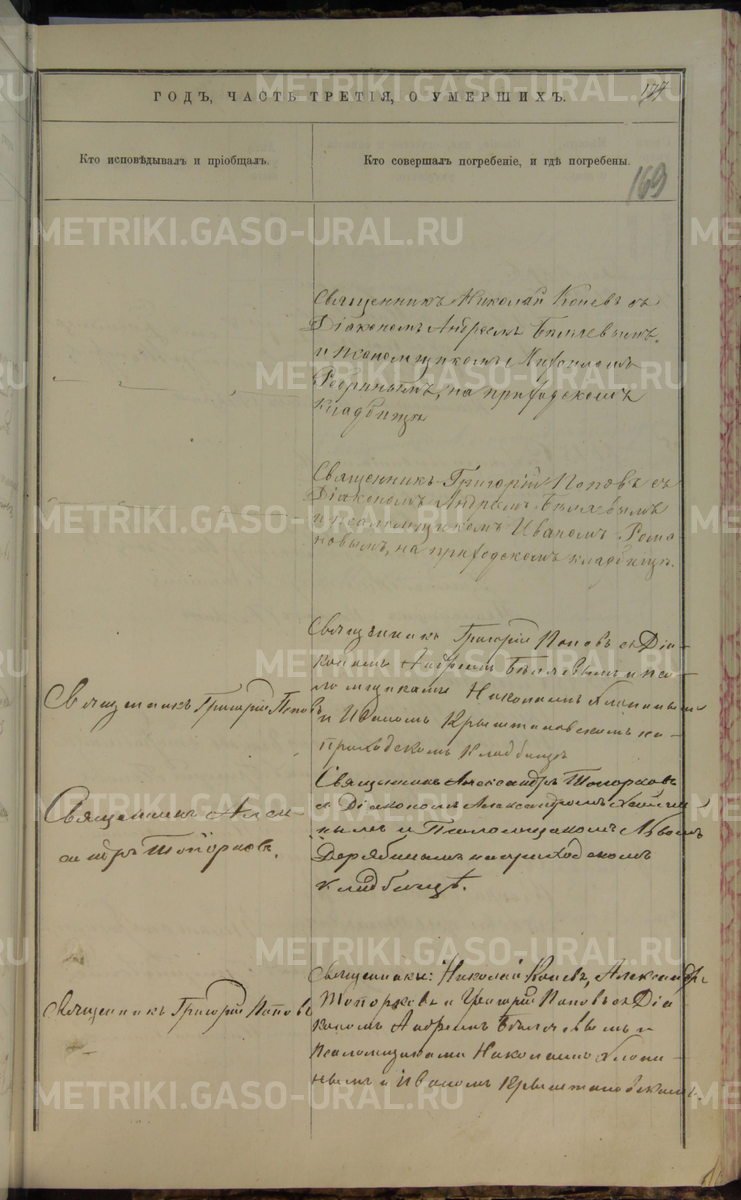 ГОДЪ, ЧАСТЬ ТРЕТІЯ, О УМЕРШИХЪ.
177
Кто исповѣдывалъ и пріобщалъ.
Кто совершалъ погребеніе, и гдѣ погребены.
169
Священникъ Николай Коневъ съ
Діакономъ Андреемъ Бѣляевымъ,
и псаломщикомъ
на приходскомъ
кладбищѣ
Священникъ Григорій Поповъ съ
Діакономъ Андреемъ Бѣляевымъ
и псаломщикомъ Иваномъ Рома-
новымъ, на приходскомъ кладбищѣ.
Священникъ Григорій Поповъ
Священникъ Григорій Поповъ съ Діа-
кономъ Андреемъ Бѣляевымъ и пса-
ломщиками Николаемъ
и Иваномъ Крыштановскимъ на
приходскомъ кладбищѣ
Священникъ Алек-
сандръ Топорковъ.
Священникъ Александръ Топорковъ
съ Діакономъ Александромъ
и Псаломщикомъ Львомъ
Дерябинымъ на приходскомъ
кладбищѣ.
Священникъ Григорій Поповъ
Священники: Николай Коневъ, Александръ
Топорковъ и Григорій Поповъ съ Діа-
кономъ Андреемъ Бѣляевымъ и
псаломщиками Николаемъ
и Иваномъ Крыштановскимъ
METRIKI.GASO-URAL.RU